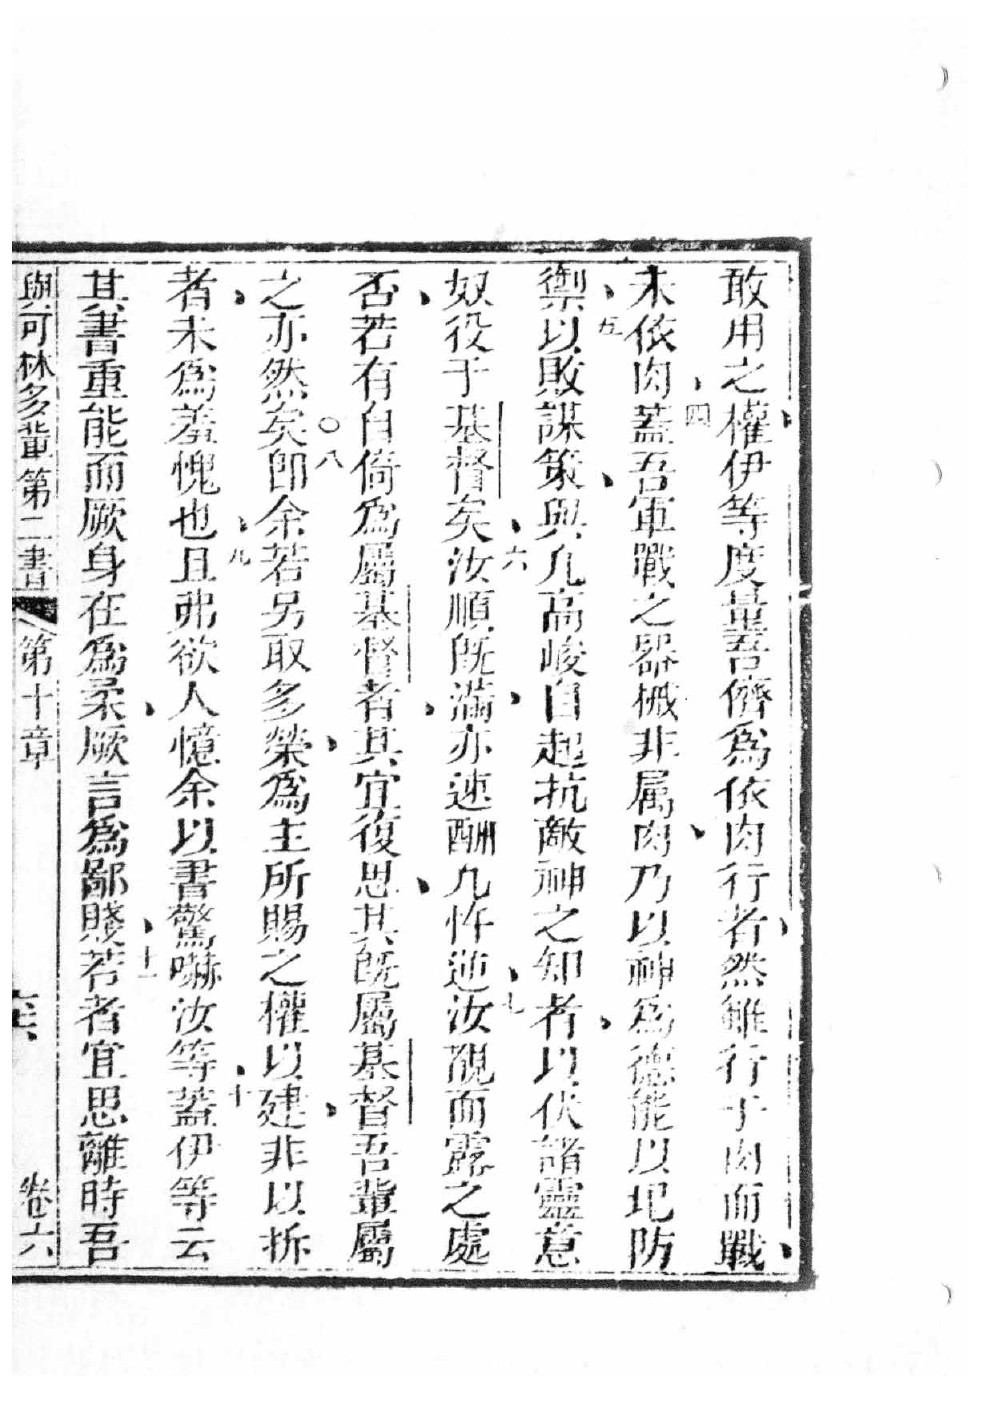 敢用之權伊等度量吾儕為依肉行者然雖行于肉而戰
未依肉四蓋吾軍戰之器械非属肉乃以神為德能以圮防
禦五以敗謀策與凢高峻自起抗敵神之知者以伏諸靈意
奴役于基督矣六汝順既滿亦速酬凢忤逆七汝覩面露之處
否若有自倚為屬基督者其宜復思其既屬基督吾輩屬
之亦然矣○八即余若另取多榮為主所賜之權以建非以拆
者未為羞愧也九且弗欲人憶余以書驚嚇汝等十蓋伊等云
其書重能而厥身在為柔厥言為鄙賤十一若者宜思離時吾
與可林多輩第二書 第十章 卷六